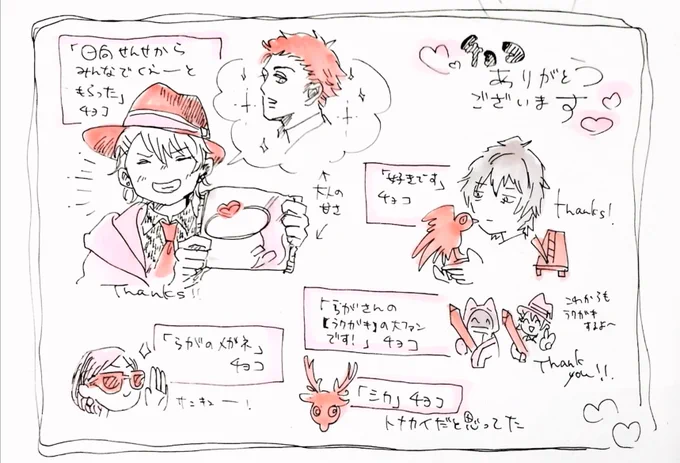 「日向せんせから
みんなでくえーと
もらった」
チョコ
チョコ
ありがとう
ございます
↑
大人の
甘さ
↙
Thanks!!
「好きです」
チョコ
thanks!
「らがさんの
【ラクガキ】の大ファン
です!」チョコ
これからも
ラクガキ
するよ〜
Thank
you!!
「らがのメガネ」
チョコ
サンキュー!
「シカ」チョコ
トナカイだと思ってた